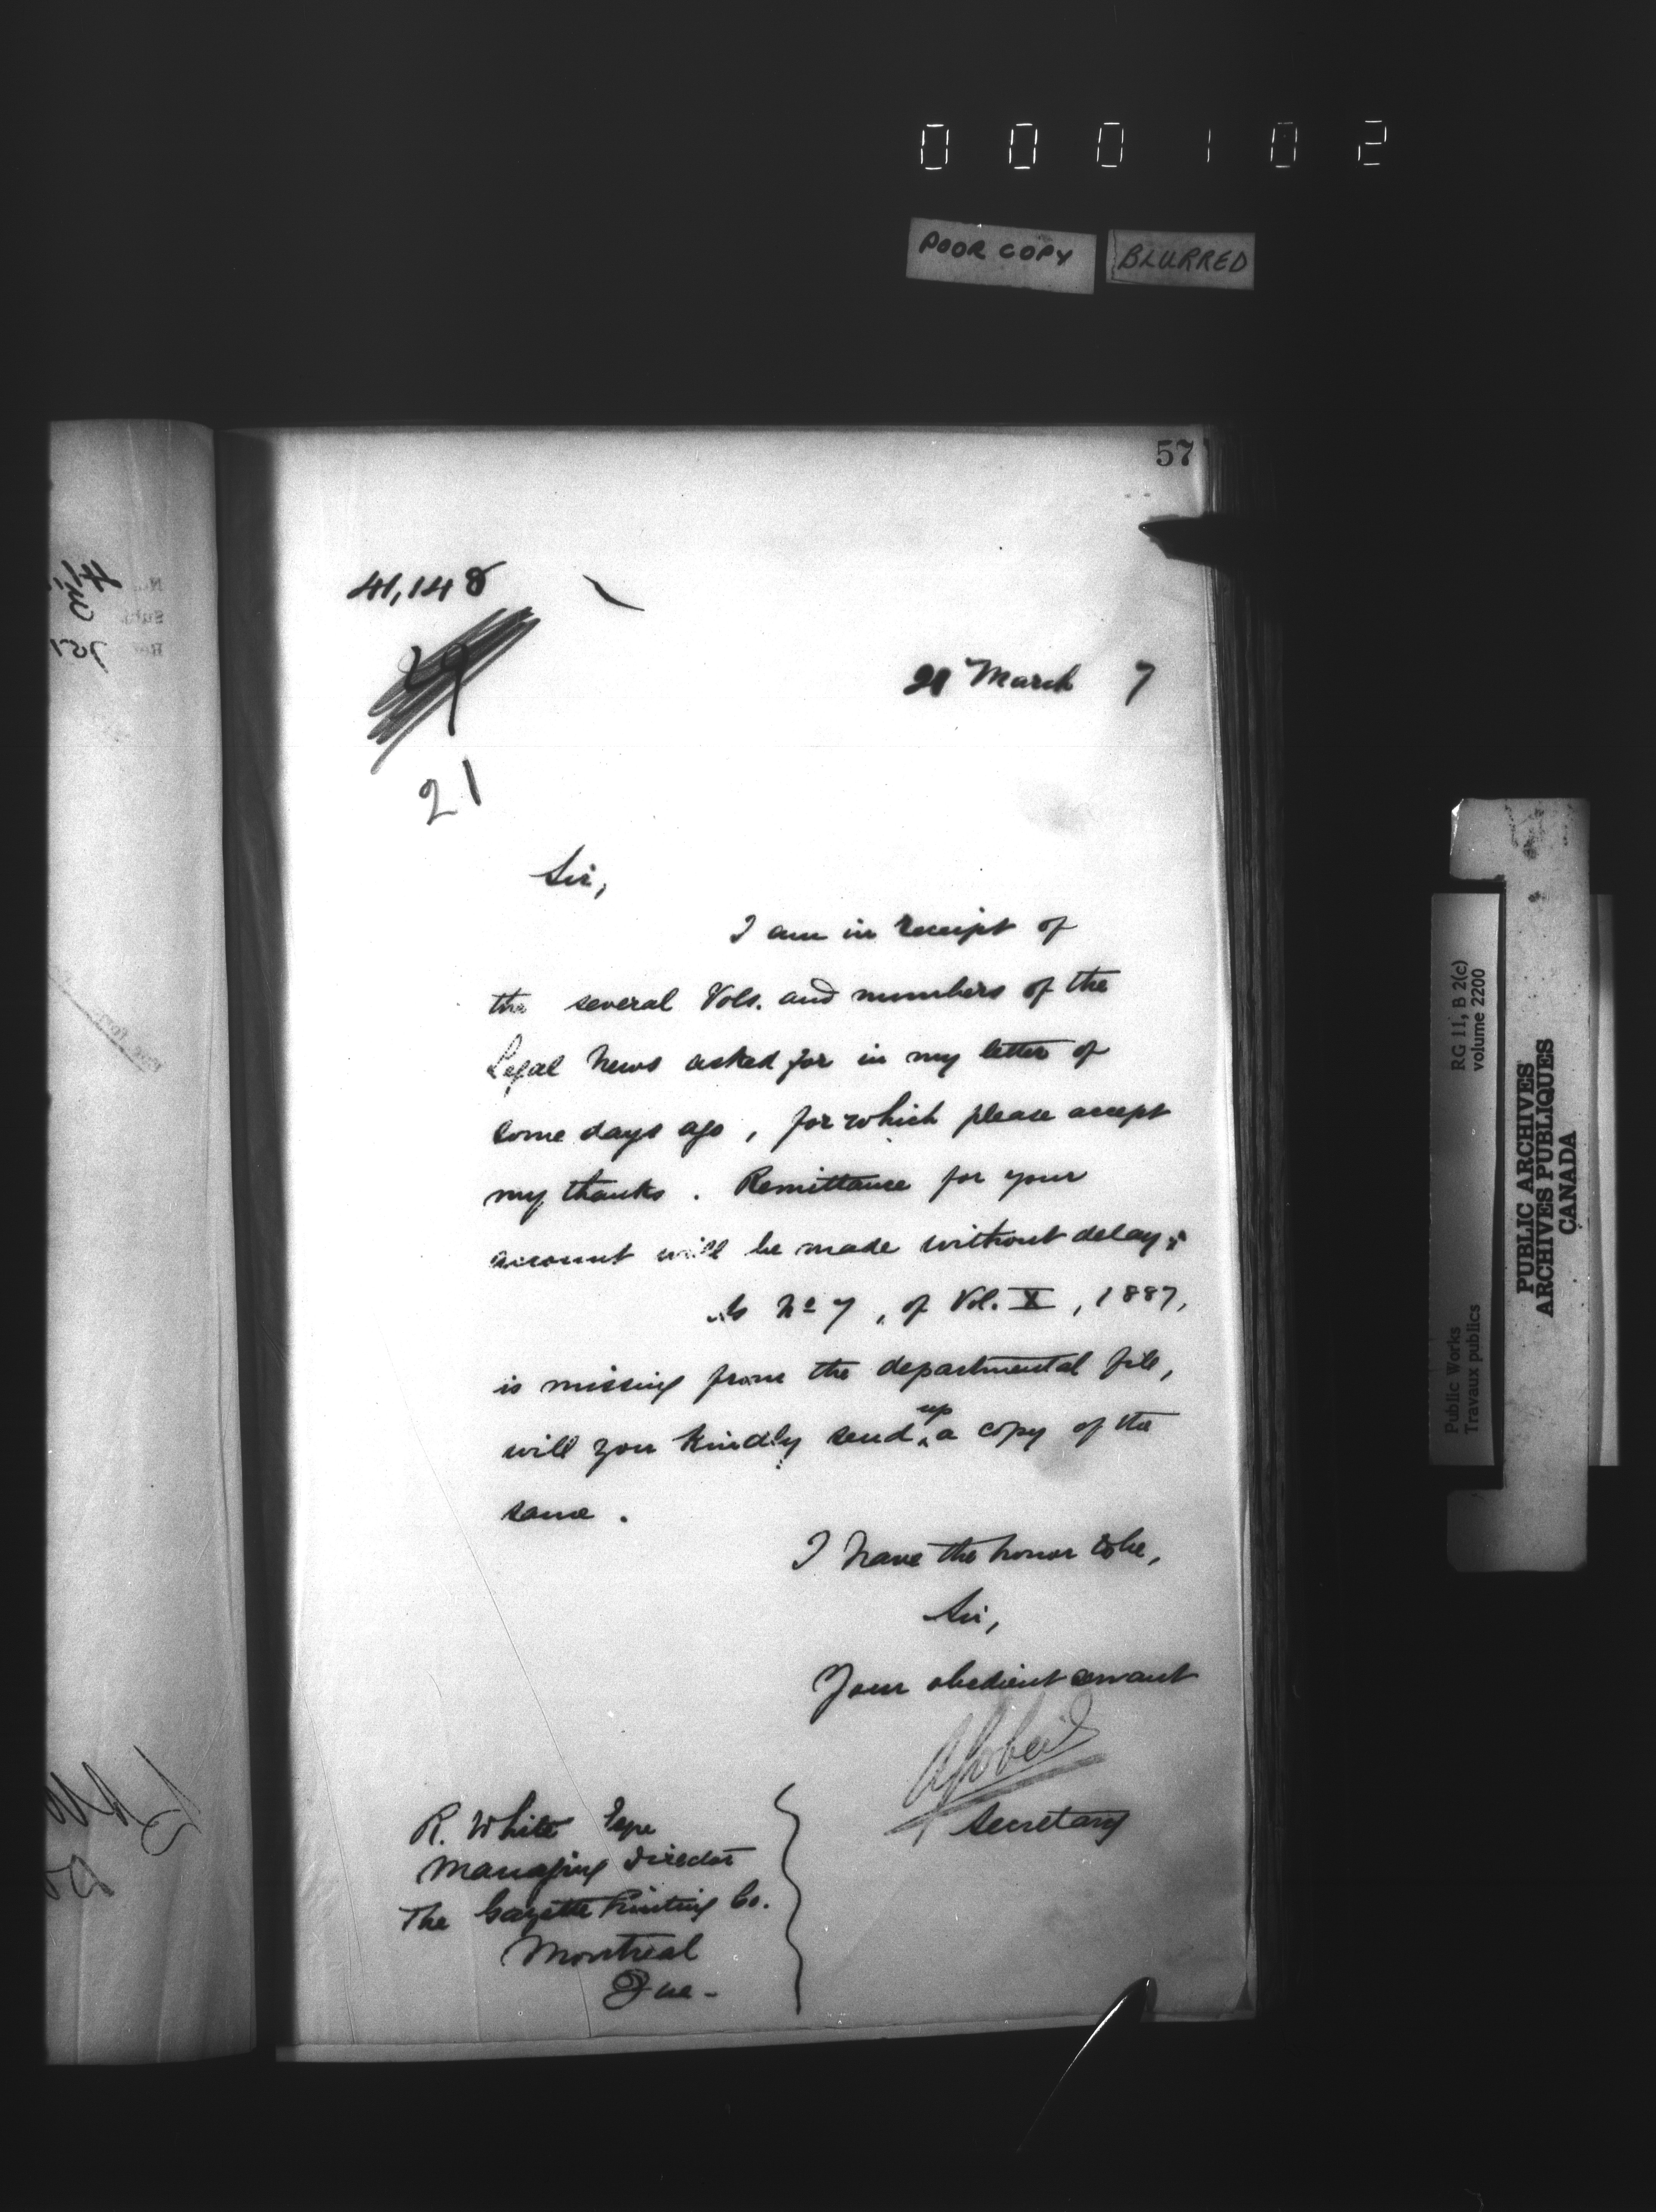 000102
POOR COPY BLURRED
57
41,148
29
21
21 March 7
Sir,
I am in receipt of
the several Vols. and numbers of the
Legal News asked for in my letter of
some days ago, for which please accept
my thanks. Remittance for your
account will be made without delay.
As No 7, of Vol. X, 1887,
is missing from the departmental file,
will you kindly send up a copy of the
same.
I have the honor to be,
Sir,
Your obedient servant
AGobeil
Secretary
R. White Esqe
Managing Director
The Gazette Printing Co.
Montreal
Que-
RG 11, B 2(c)
volume 2200
Public Works
Travaux publics
PUBLIC ARCHIVES
ARCHIVES PUBLIQUES
CANADA